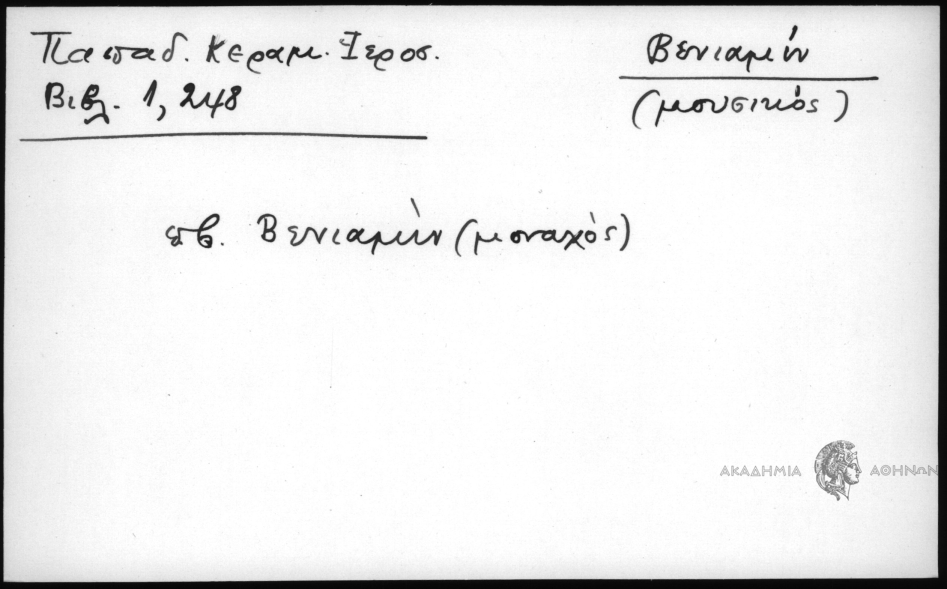 Παπαδ. Κεραμ. Ἱεροσ.
Βιβλ. 1, 248
Βενιαμίν
(μουσικός)
Βενιαμὶν (μοναχὸς)
ΑΚΑΔΗΜΙΑ ΑΘΗΝΩΝ